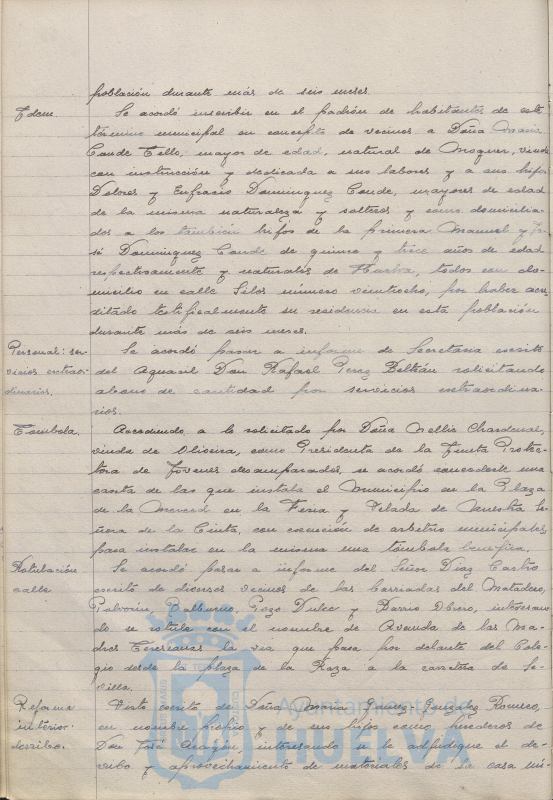 población durante más de seis meses.
Idem. Se acordó inscribir en el padrón de habitantes de este
término municipal en concepto de vecinos a Doña María
Conde Tello, mayor de edad, natural de Moguer, viuda
con instrucción y dedicada a sus labores y a sus hijos
Dolores y Eufracio Dominguez Conde, mayores de edad
de la misma naturaleza y solteros y como domicilia-
dos a los también hijos de la primera Manuel y Jo-
sé Dominguez Conde de quince y trece años de edad
respectivamente y naturales de Huelva, todos con do-
micilio en calle Silos número veintiocho, por haber acre-
ditado testificalmente su residencia en esta población
durante más de seis meses.
Personal: ser-
vicios extraor-
dinarios.
Se acordó pasar a informe de Secretaría escrito
del Aguacil Don Rafael Perez Beltrán solicitando
abono de cantidad por servicios extraordina-
rios.
Tómbola. Accediendo a lo solicitado por Doña Nellie
viuda de Oliveira, como Presidenta de la Junta Protec-
tora de Jóvenes desamparados, se acordó concederle una
caseta de las que instala el Municipio en la Plaza
de la Merced en la Feria y Velada de Nuestra Se-
ñora de la Cinta, con exención de arbitrio municipales,
para instalar en la misma una tómbola benéfica.
Rotulación
calle.
Se acordó pasar a informe del Señor Diaz Castro
escrito de diversos vecinos de las barriadas del Matadero,
Polvorin, Balbueno, Pozo Dulce y Barrio Obrero, interesan-
do se rotule con el nombre de Avenida de las Ma-
dres Teresianas la via que pasa por delante del Cole-
gio desde la plaza de la Raza a la carretera de Se-
villa.
Reforma
interior:
derribo.
Visto escrito de Doña María Gomez Gonzalez Romero,
en nombre propio y de sus hijos como herederos de
Don José Aragón, interesando se le adjudique el de-
rribo y aprovechamiento de materiales de la casa nú-
Ayuntamiento de
HUELVA